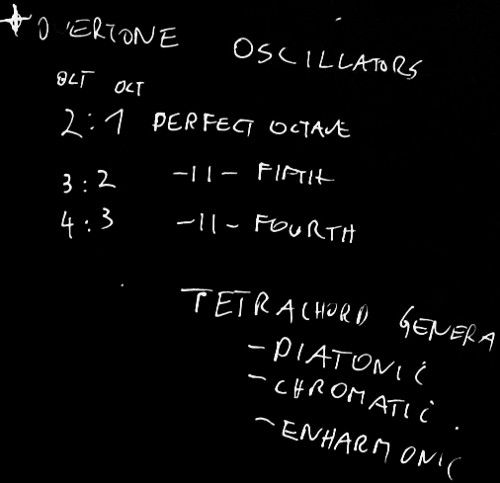 O'ERTONE OSCILLATORS
OCT OCT
2:1 PERFECT OCTAVE
3:2 -11- FIFTH
4:3 -11- FOURTH
TETRACHORD GENERA
- DIATONIC
- CHROMATIC.
- ENHARMONIC